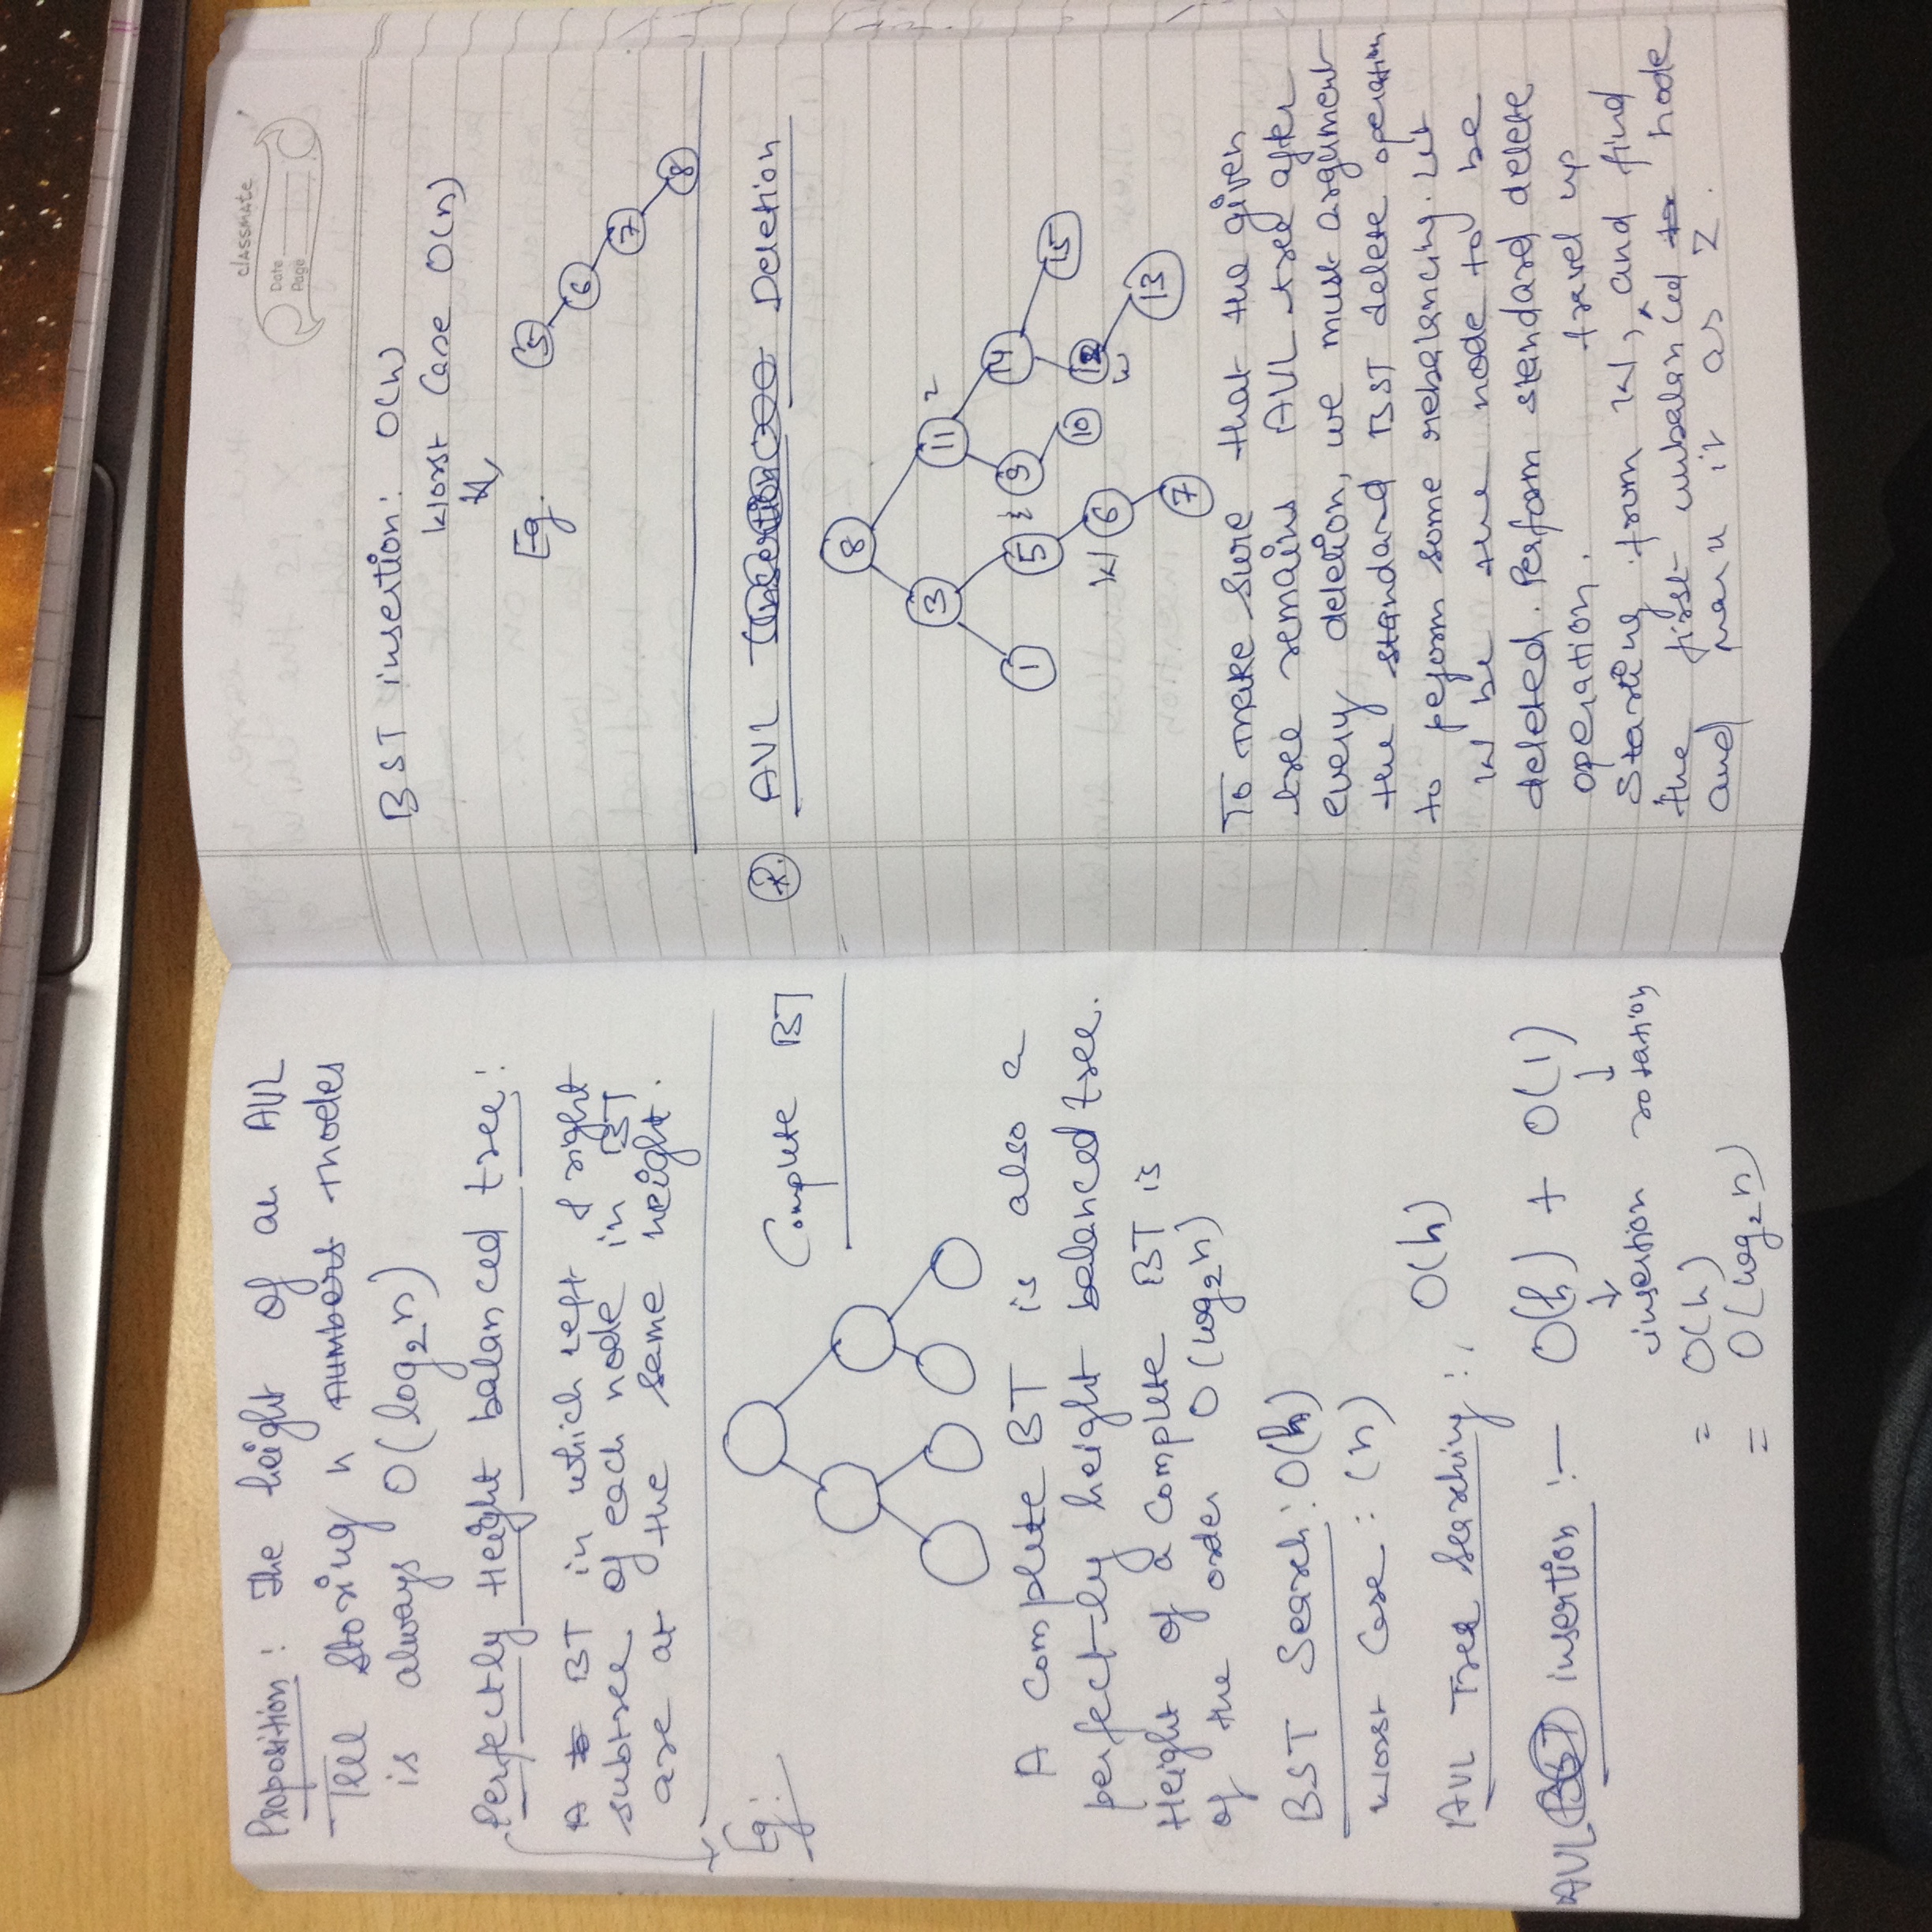 Proposition : The height of an AVL
Tree storing n numbers nodes
is always O(log₂n)
Perfectly Height balanced tree :
A BT in which left & right
subtree of each node in BT
are at the same height.
Eg:
Complete BT
A complete BT is also a
perfectly height balanced tree.
Height of a complete BT is
of the order O(log₂n)
BST Search : O(h)
worst case : (n)
AVL Tree Searching :, O(h)
AVL BST insertion :- O(h) + O(1)
insertion rotation
= O(h)
= O(log₂n)
classmate
Date
Page
BST insertion : O(h)
Worst Case O(n)
Eg.
5
6
7
8
AVL Insertion Deletion
8
3
11
2
1
5
9
14
6
10
12
15
7
13
To make sure that the given
tree remains AVL tree after
every deletion, we must argument
the standard BST delete operation
to pejorm some rebalancing. Let
w be the node to be
deleted. Perform standard delete
operation.
travel up
Starting from w, and find
the first unbalanced node
and mark it as Z.